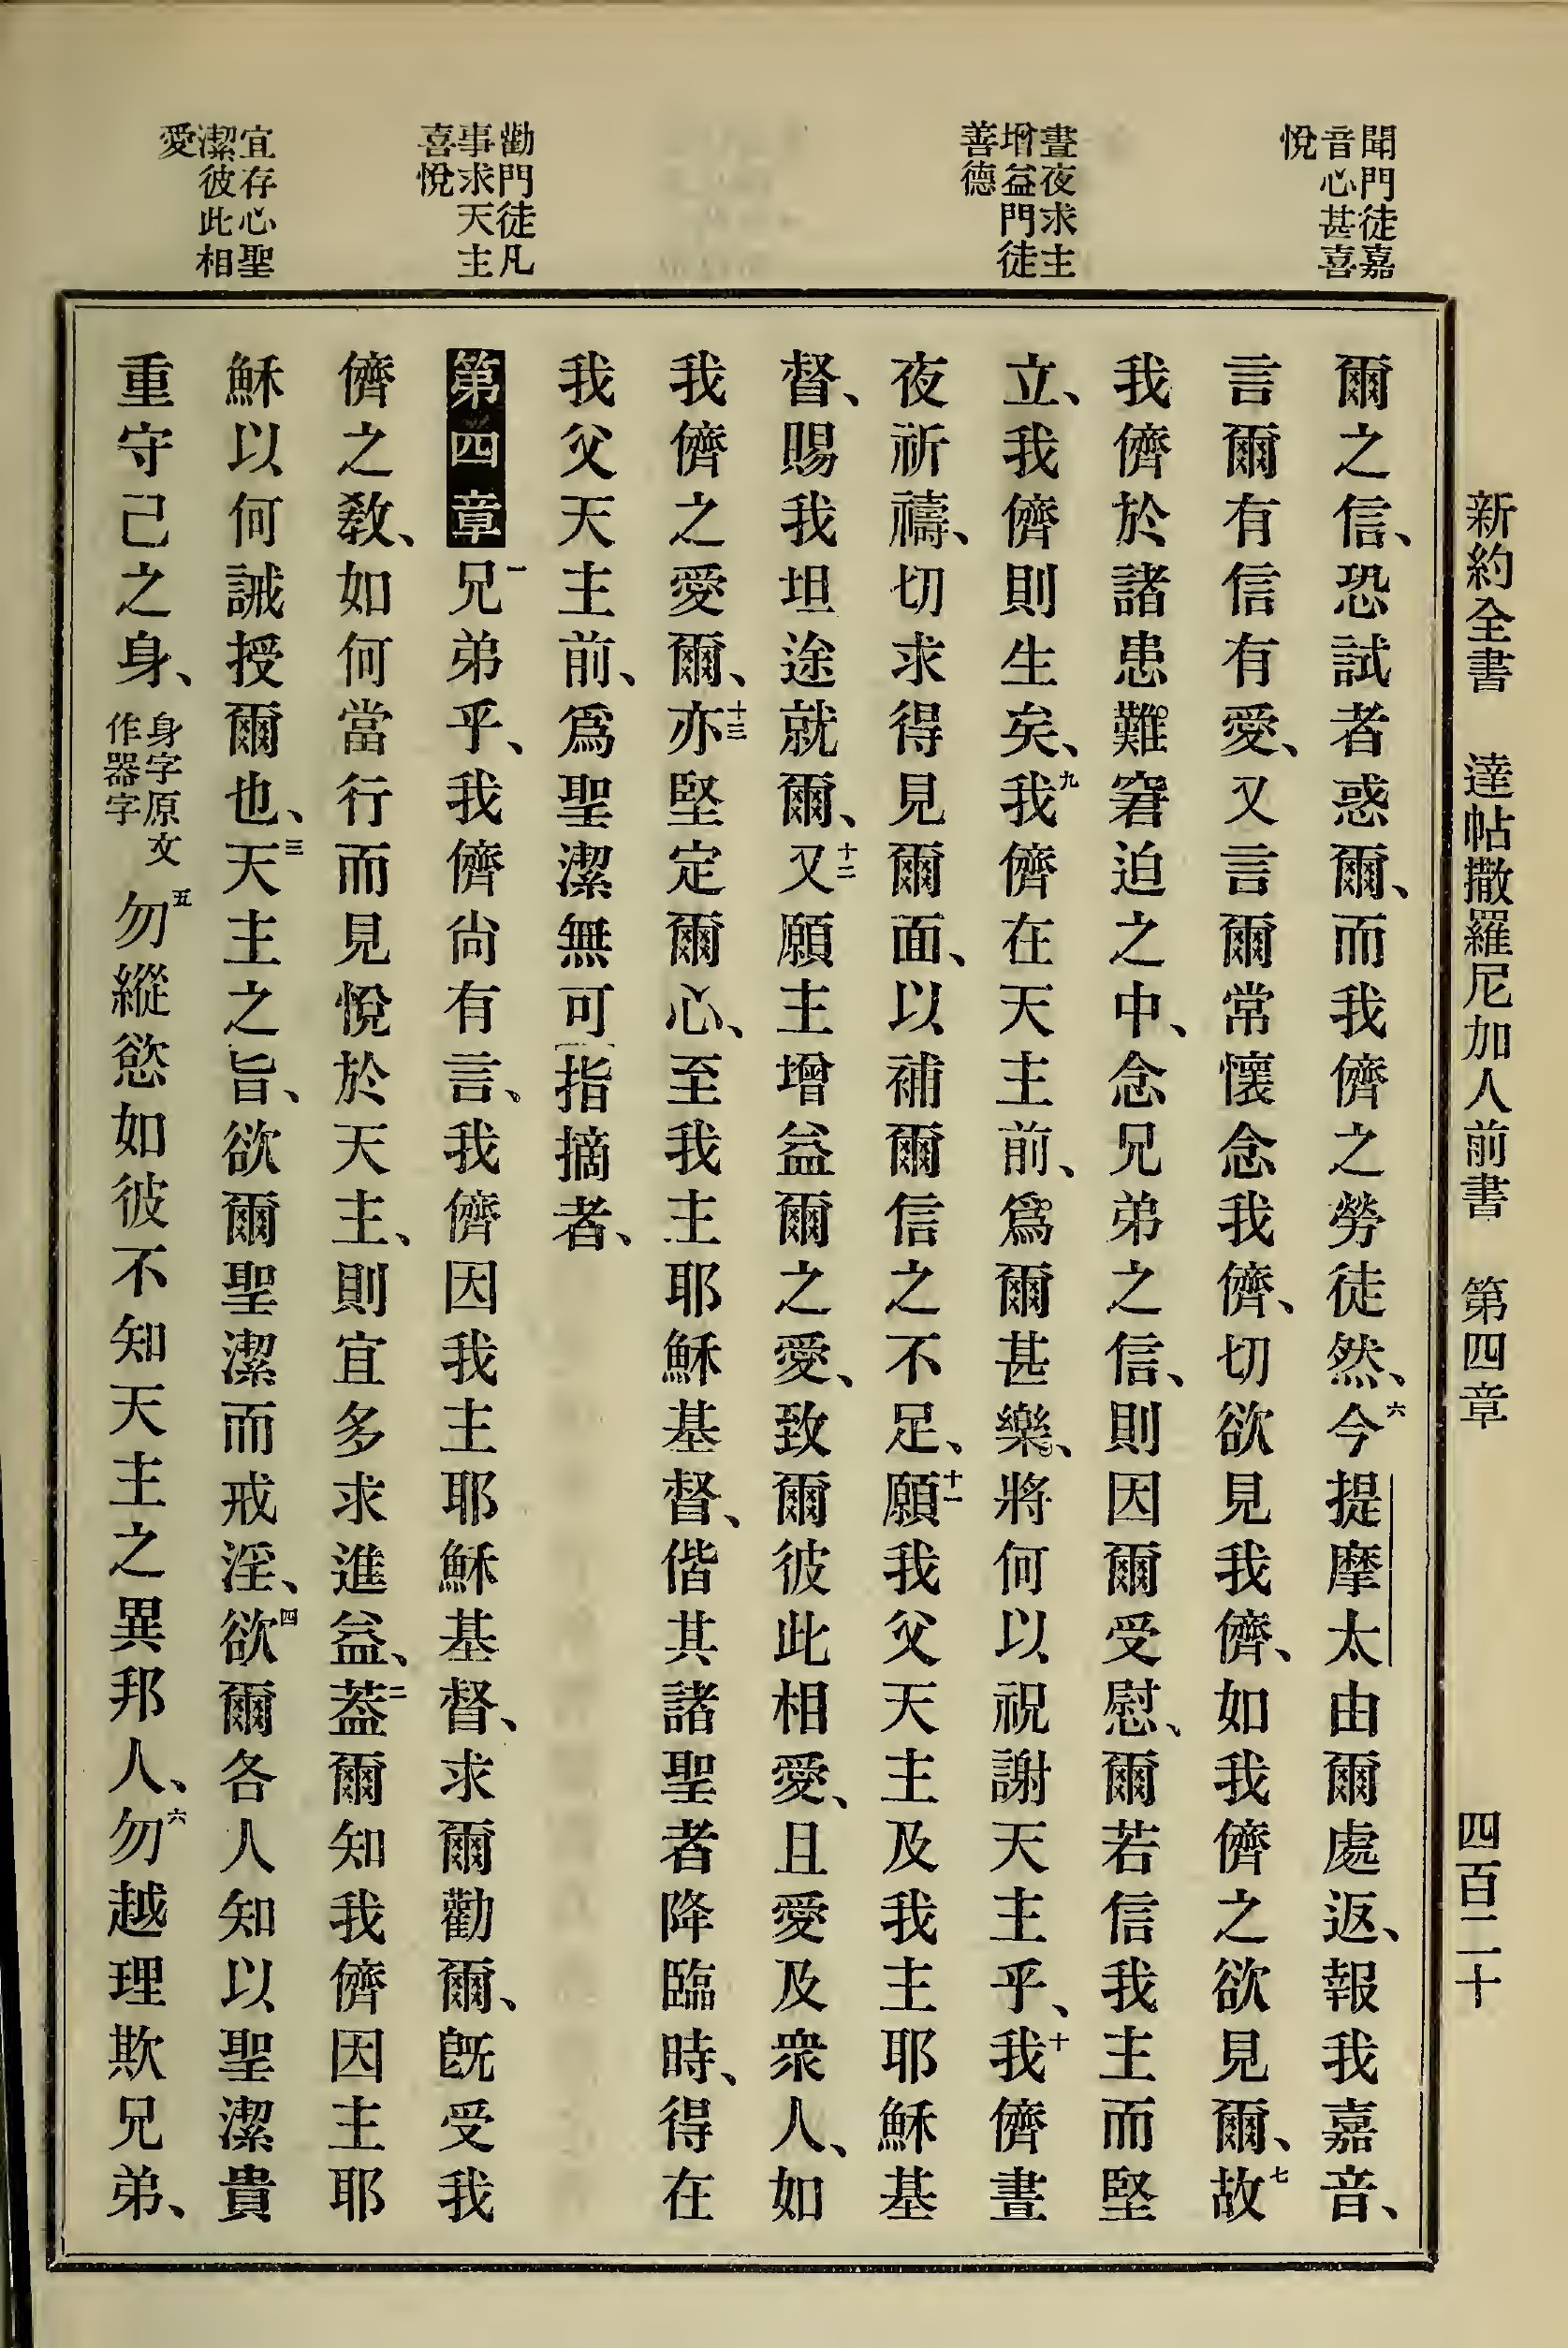 新約全書 達帖撒羅尼加人前書 第四章 四百二十
聞門徒嘉
音心甚喜
悅
晝夜求主
增益門徒
善德
勸門徒凡
事求天主
喜悅
宜存心聖
潔彼此相
愛
爾之信、恐試者惑爾、而我儕之勞徒然、六今提摩太由爾處返、報我嘉音、
言爾有信有愛、又言爾常懷念我儕、切欲見我儕、如我儕之欲見爾、七故
我儕於諸患難窘迫之中、念兄弟之信、則因爾受慰、爾若信我主而堅
立、我儕則生矣、九我儕在天主前、爲爾甚樂、將何以祝謝天主乎、十我儕晝
夜祈禱、切求得見爾面、以補爾信之不足、十一願我父天主及我主耶穌基
督、賜我坦途就爾、十二又願主增益爾之愛、致爾彼此相愛、且愛及衆人、如
我儕之愛爾、十三亦堅定爾心、至我主耶穌基督、偕其諸聖者降臨時、得在
我父天主前、爲聖潔無可指摘者、
第四章 一兄弟乎、我儕尚有言、我儕因我主耶穌基督、求爾勸爾、既受我
儕之敎、如何當行而見悅於天主、則宜多求進益、二蓋爾知我儕因主耶
穌以何誡授爾也、三天主之旨、欲爾聖潔而戒淫、四欲爾各人知以聖潔貴
重守己之身、身字原文作器字 五勿縱慾如彼不知天主之異邦人、六勿越理欺兄弟、